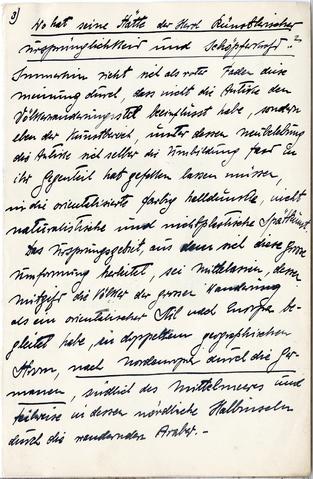 3) Wo hat seine Stätte der Herd Künstlerischer
Ursprünglichkeit und Schöpferkraft?
Immerhin zieht sich als roter Faden diese
meinung durch, dass nicht die Antike den
Völkerwanderungsstil beeinflusst habe, sondern
eben der Kunstkreis, unter dessen Neubelebung
die Antike sich selber die Umbildung fast in
ihr Gegenteil hat gefallen lassen müssen,
in die orientalisierte farbig helldunkle, nicht
naturalistische und nichtplastische Spätkunst.
Das Ursprungsgebiet, aus dem sich diese grosse
Umformung herleitet, sei Mittelasien, dessen
mitgift die Völker der grossen Wanderung
als ein orientalischer Stil nach Europa be-
gleitet habe, in doppeltem geographischen
Strom, nach Nordeuropa durch die Ger-
manen, südlich des Mittelmeeres und
teilweise in dessen nördliche Halbinseln
durch die wandernden Araber.-